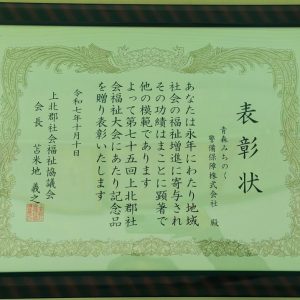 表彰状
青森みちのく
警備保障株式会社 殿
あなたは永年にわたり地域
社会の福祉増進に寄与され
その功績はまことに顕著で
他の模範であります
よって第七十五回上北郡社
会福祉大会にあたり記念品
を贈り表彰いたします
令和七年十月十日
上北郡社会福祉協議会
会長 苫米地 義之